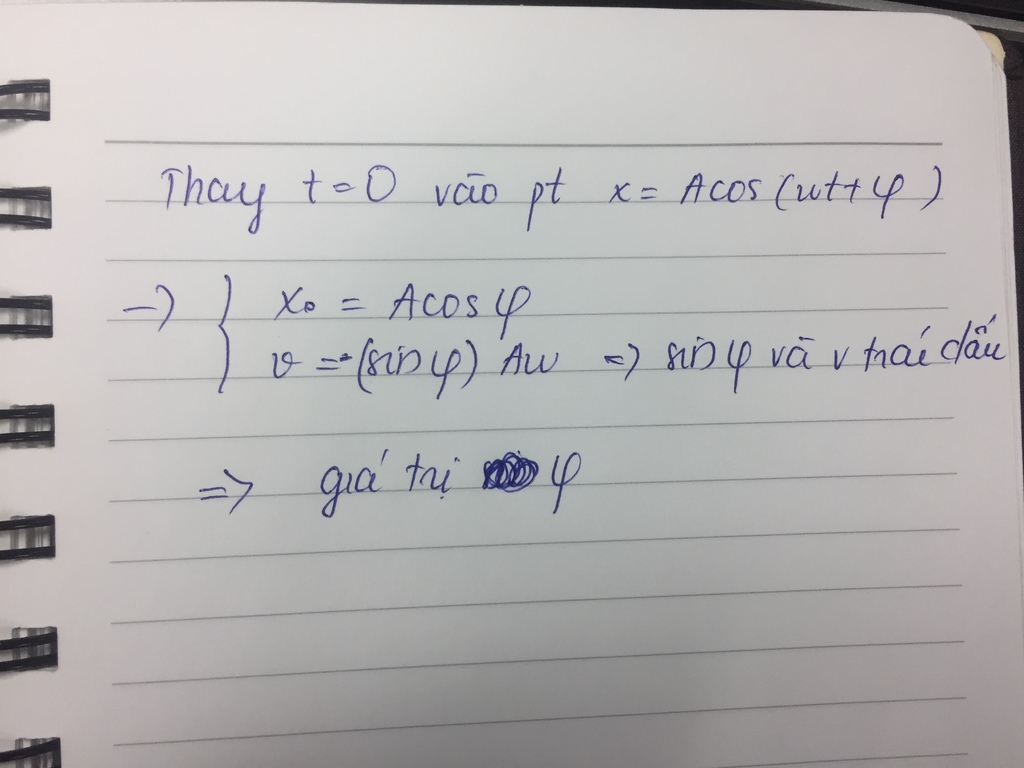 Thay t = 0 vào pt x = Acos(ωt+φ)
→ { x₀ = Acosφ
v = -(sinφ) Aω => sinφ và v trái dấu
=> giá trị φ